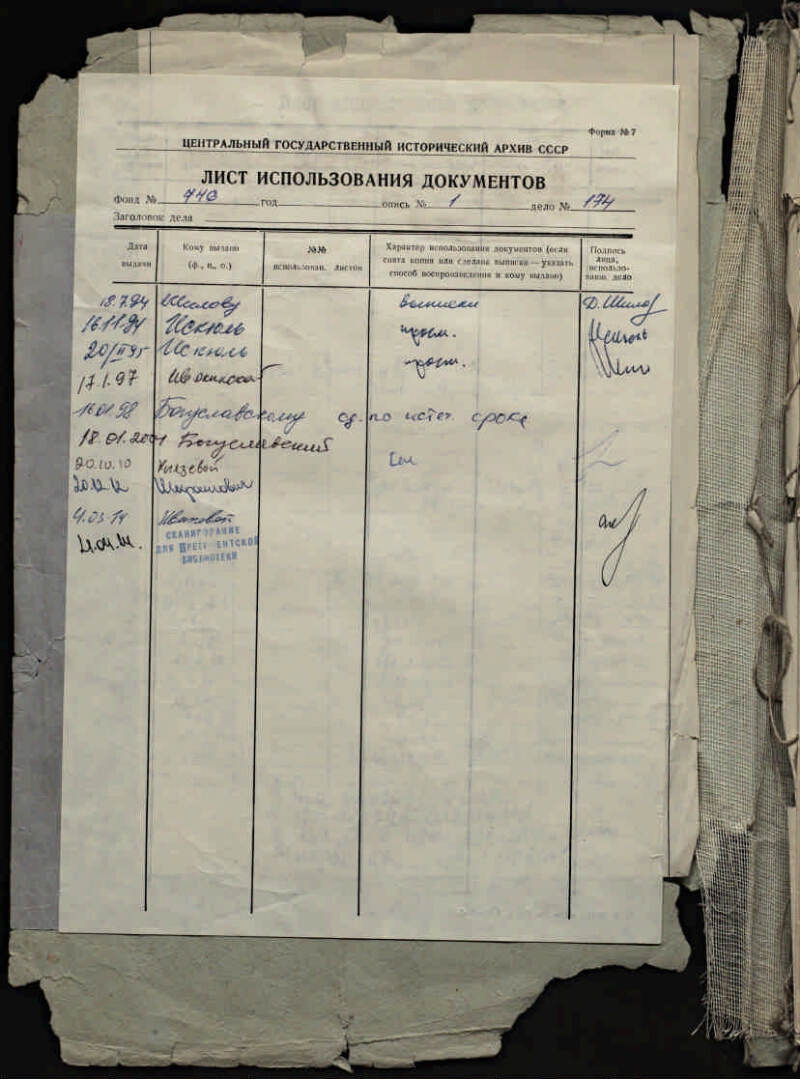 Форма № 7
ЦЕНТРАЛЬНЫЙ ГОСУДАРСТВЕННЫЙ ИСТОРИЧЕСКИЙ АРХИВ СССР
ЛИСТ ИСПОЛЬЗОВАНИЯ ДОКУМЕНТОВ
Фонд № год опись № 1 дело № 174
Заголовок дела
Дата выдачи
Кому выдано (ф., и., о.)
№№ использован. листов
Характер использования документов (если снята копия или сделана выписка — указать способ воспроизведения и кому выдано)
Подпись лица, использовавш. дело
18.7.94 Шилову выписки Д. Шилов
16.11.94 Искюль просм.
20/II 95 Искюль просм.
17.1.97
16.01.98 Богуславскому сд. по истеч. срока
18.01.2001 Богуславский
20.10.10 Князевой
20.12.12
4.03.14 Ивановой
СКАНИРОВАНИЕ
ДЛЯ ПРЕЗИДЕНТСКОЙ
БИБЛИОТЕКИ